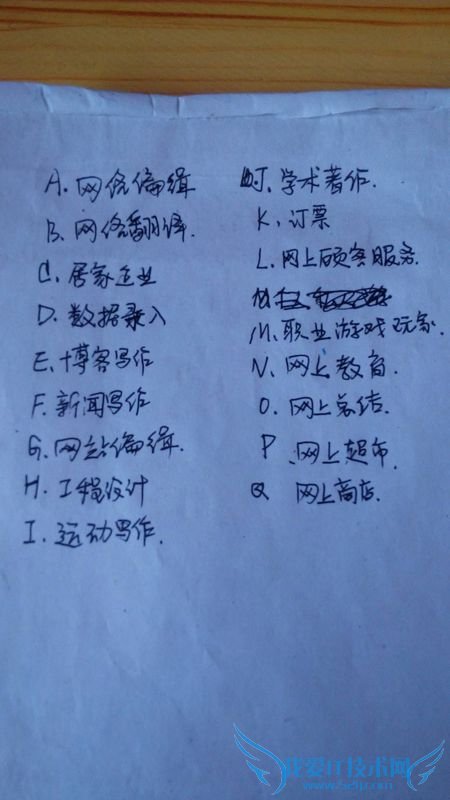 A. 网络编缉
B. 网络翻译.
C. 居家企业
D. 数据录入
E. 博客写作
F. 新闻写作
G. 网站编缉.
H. 工程设计
I. 运动写作.
J. 学术著作.
K. 订票
L. 网上顾客服务.
M. 职业游戏玩家.
N. 网上教育.
O. 网上总结.
P. 网上超市.
Q 网上商店.
我爱IT技术网